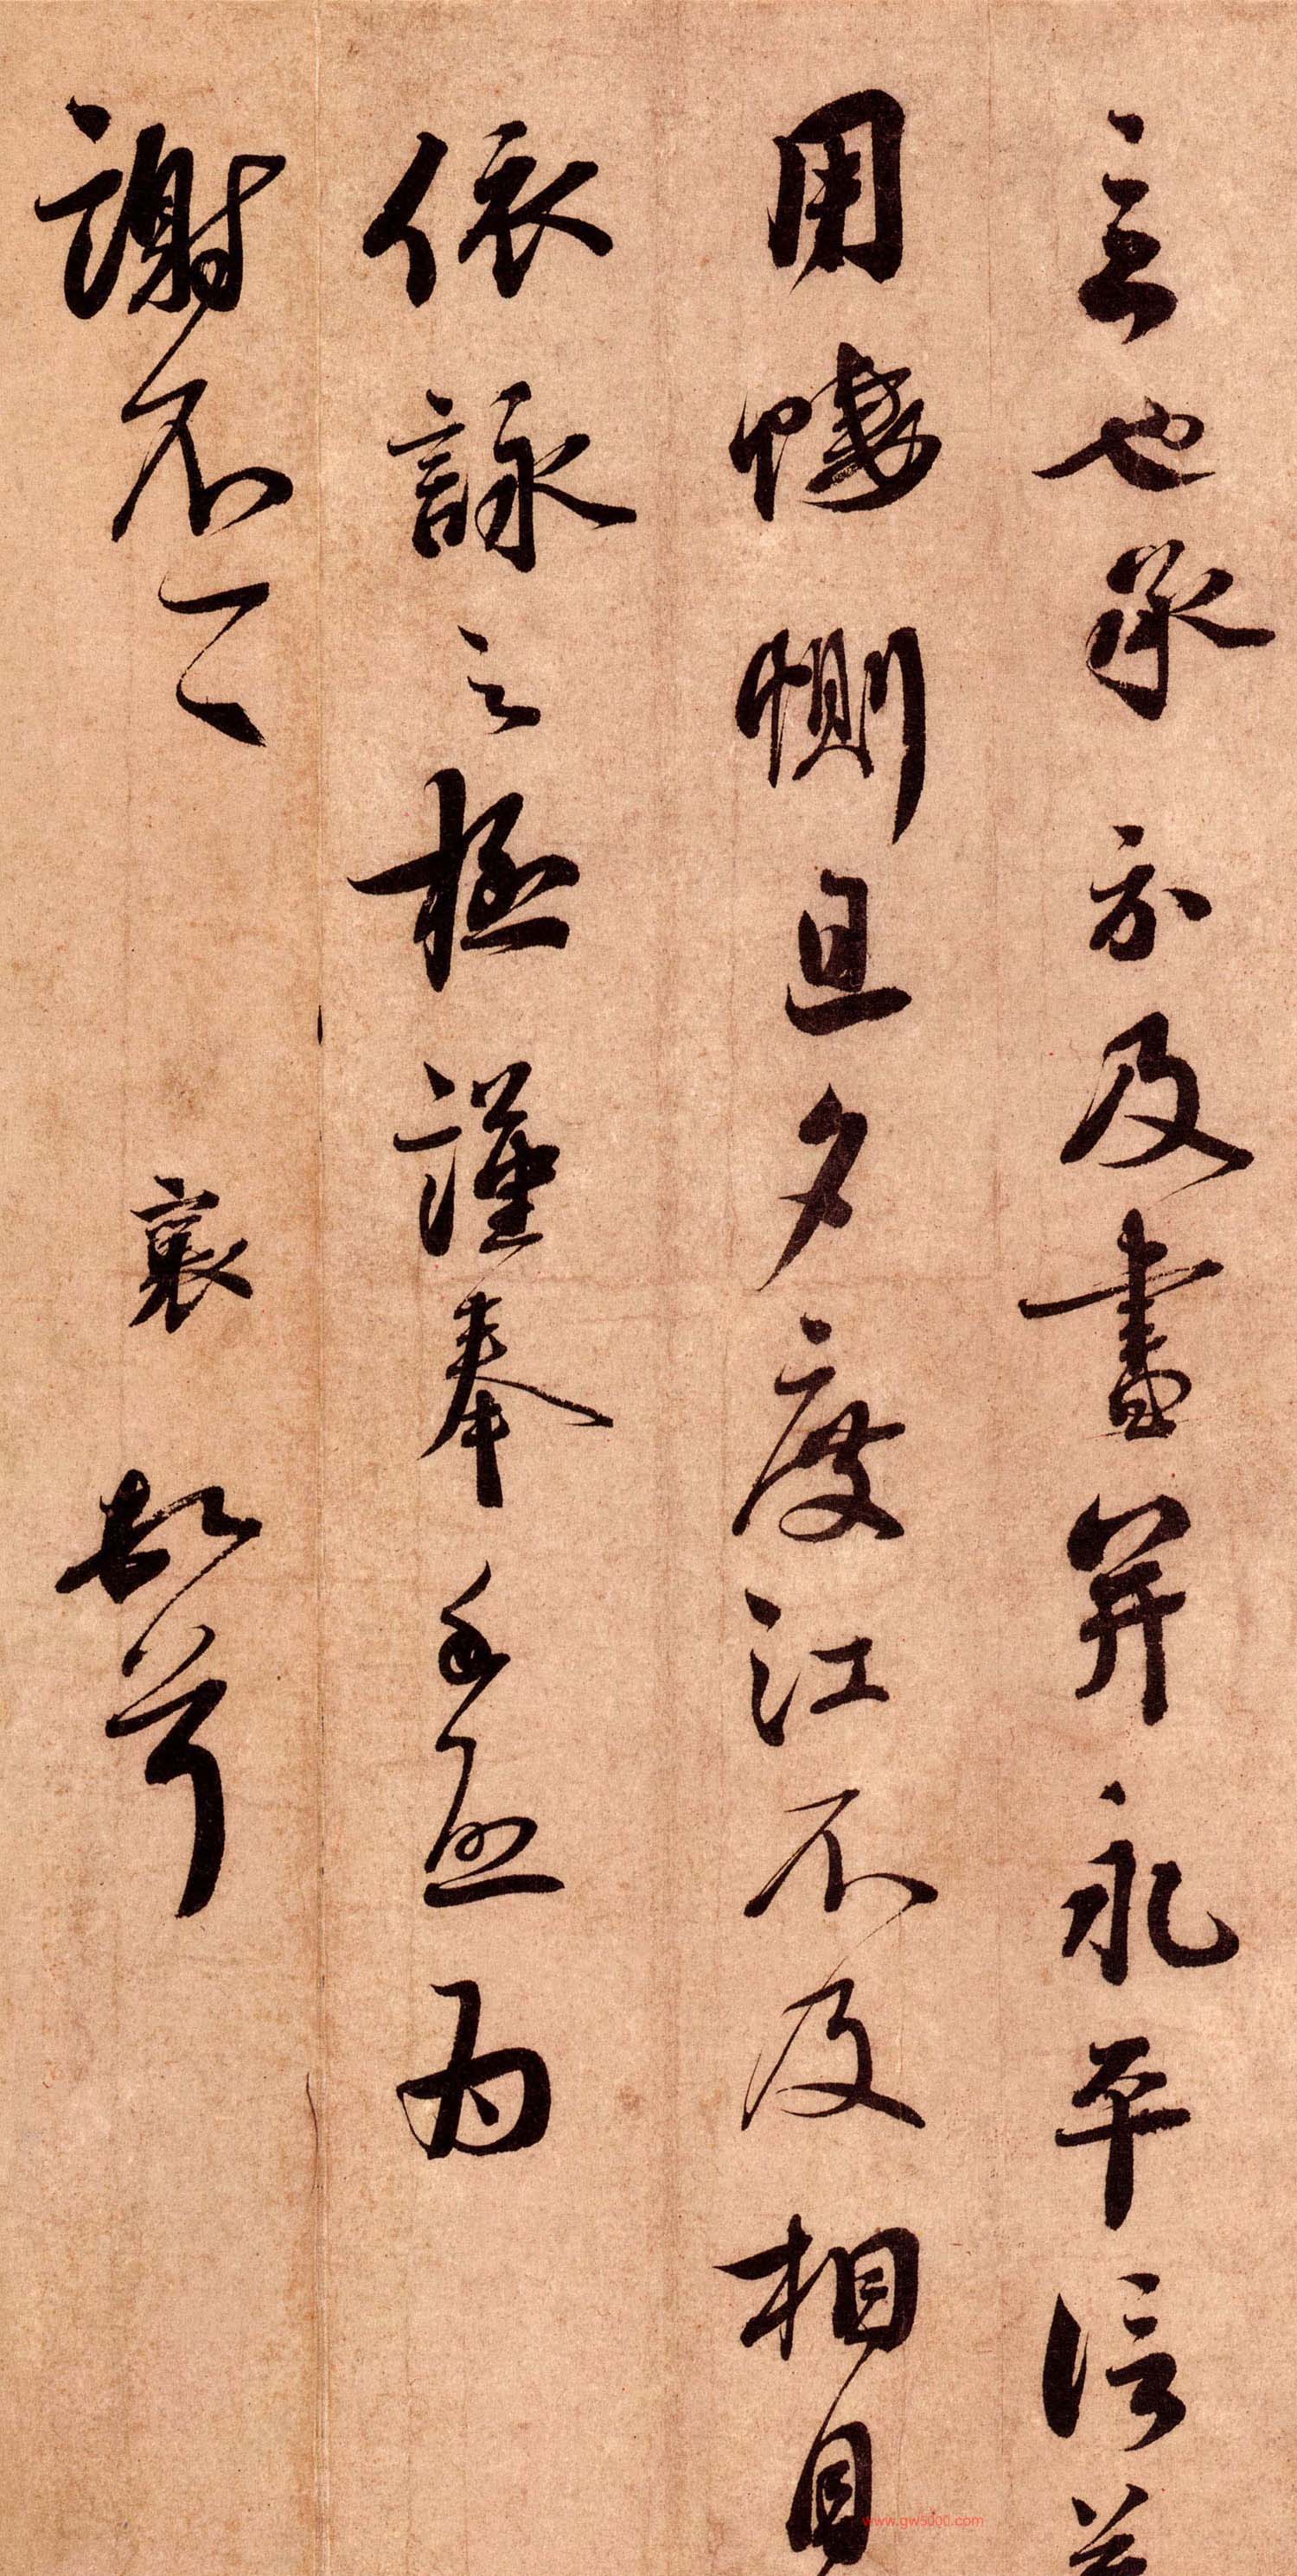 言也承示及書并永平信益
用悽惻旦夕度江不及相見
依詠之極謹奉手啟為
謝不一一 襄頓首
www.gw5000.com